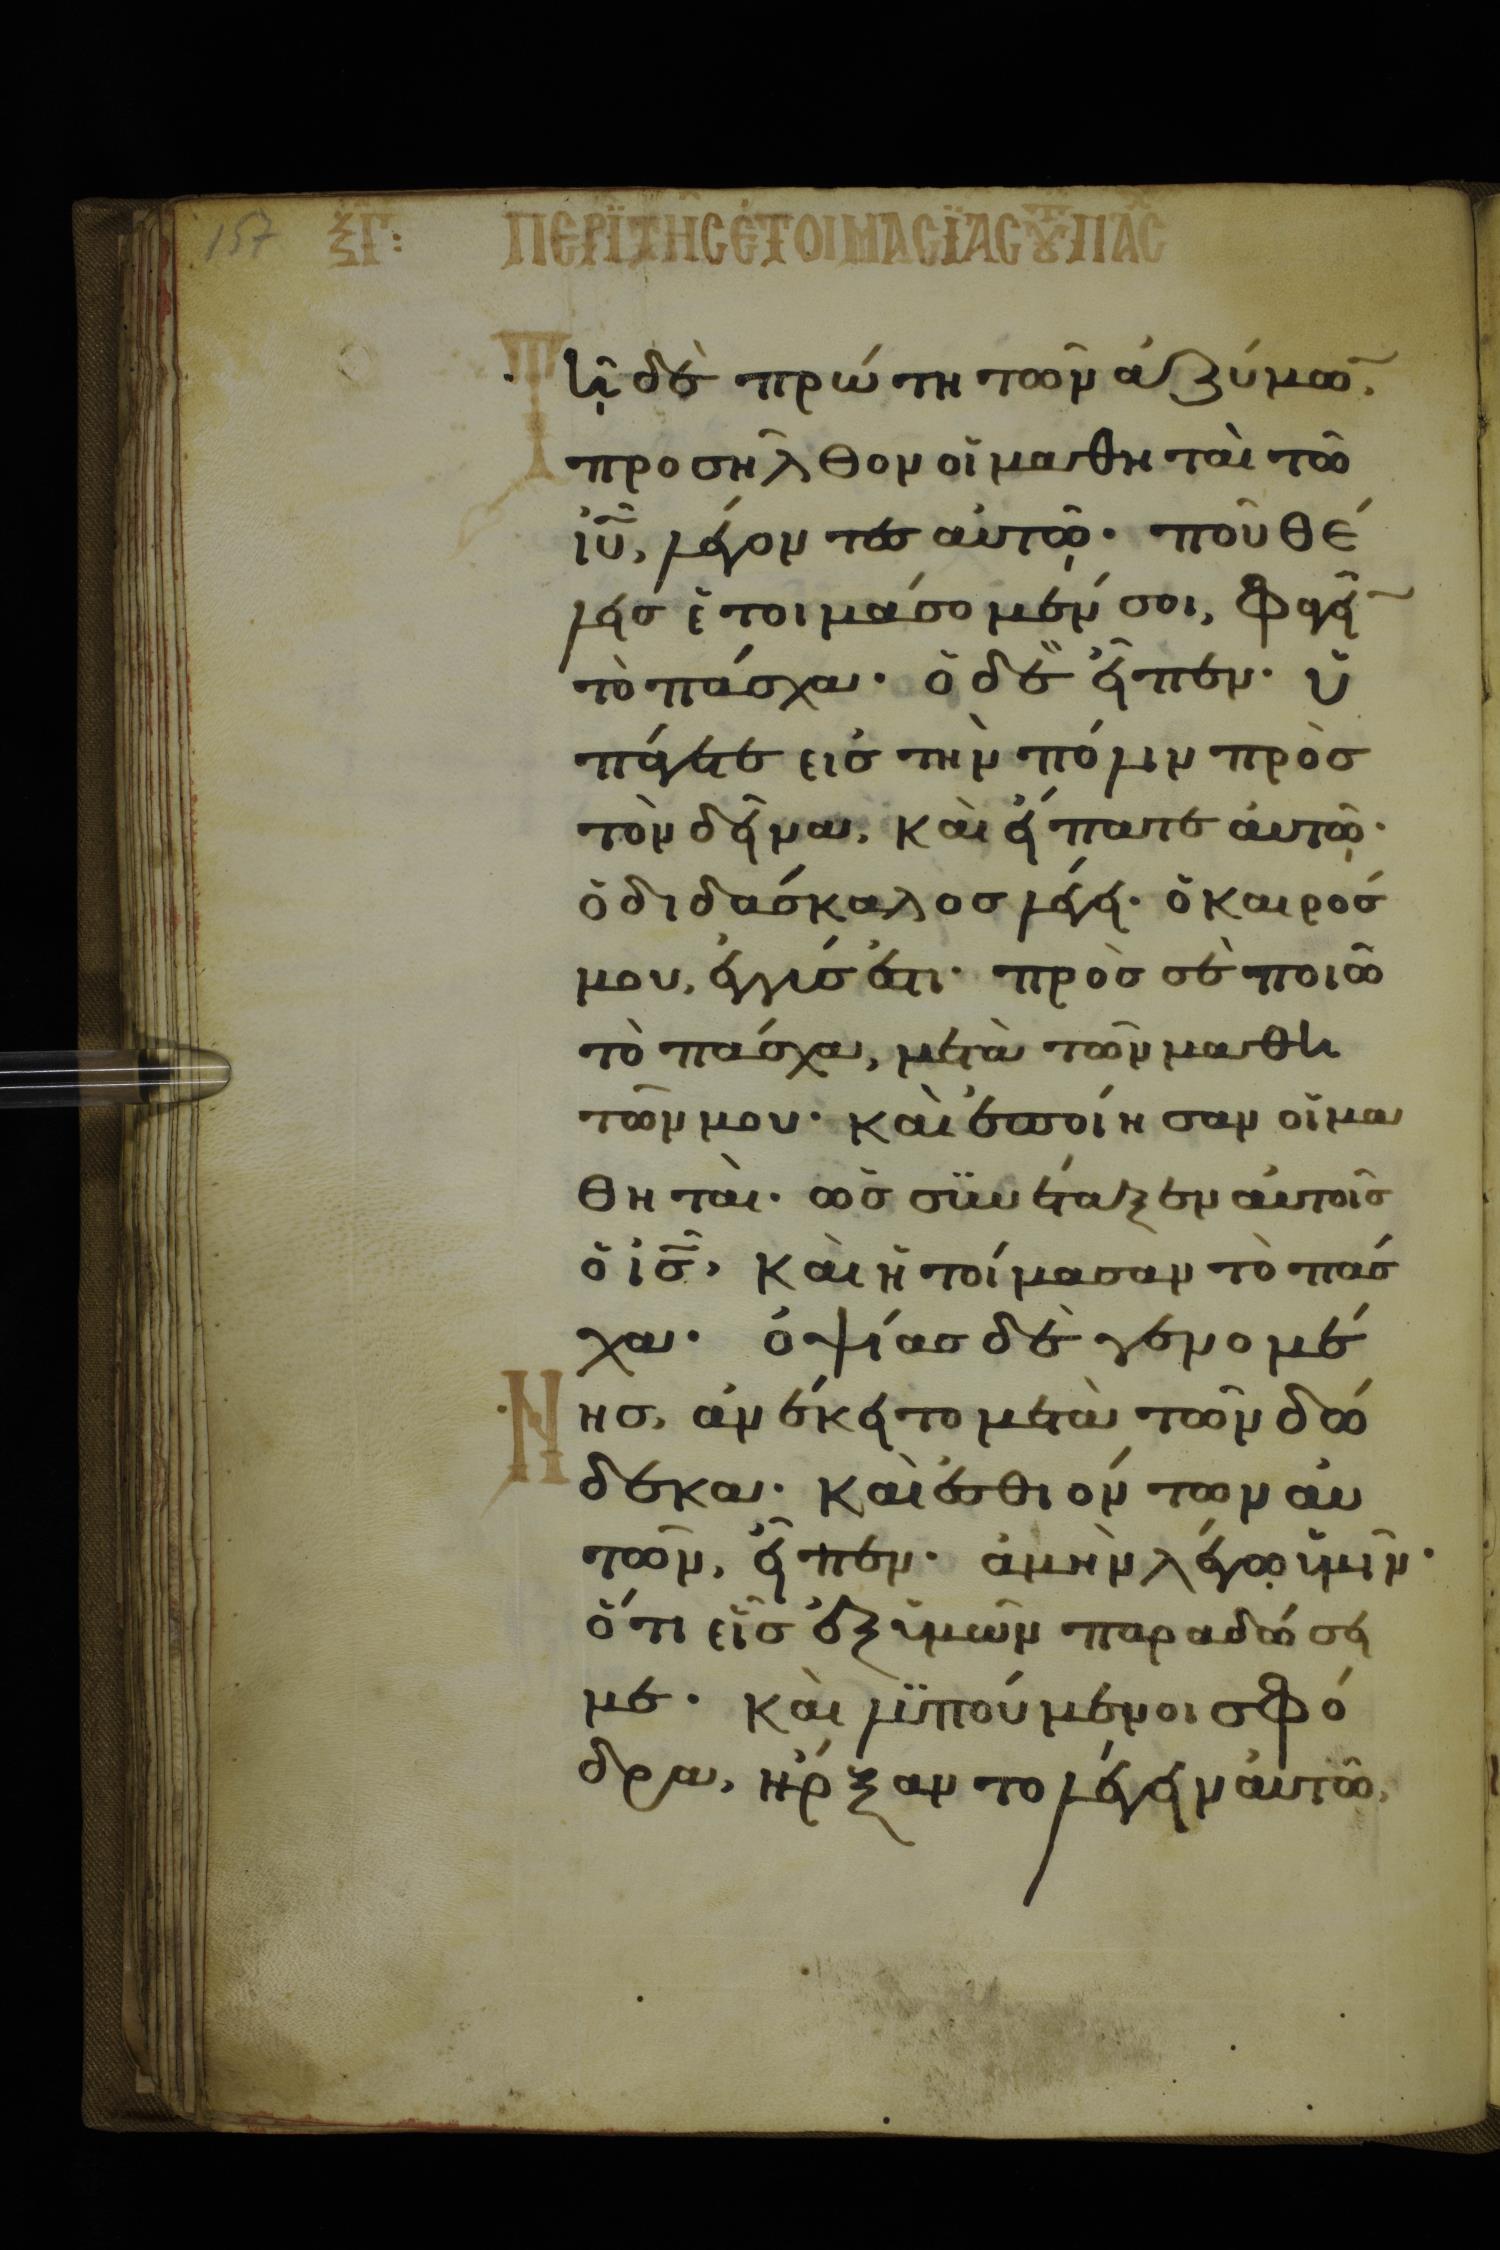 157 ξΓ: ΠΕΡῚ ΤΗ͂Σ ἙΤΟΙΜΑΣΪΑΣ ΤΟΥ͂ ΠΑΣ
Τῆ δὲ πρώτη τῶν ἀζύμω̃,
προσῆλθον οἱ μαθηταὶ τῶ
ἰῦ, λέγοντες αὐτῶ· ποῦ θέ
λεις ἑτοιμάσομέν σοι, φαγεῖ̃
τὸ πάσχα· ὁ δὲ εἶπεν· ὑ
πάγετε εἰς τὴν πόλιν πρὸς
τὸν δεῖνα, καὶ εἴπατε αὐτῶ·
ὁ διδάσκαλος λέγει· ὁ καιρός
μου, ἐγγύς ἐστι· πρὸς σὲ ποιῶ
τὸ πάσχα, μετὰ τῶν μαθη
τῶν μου· καὶ ἐποίησαν οἱ μα
θηταὶ· ὡς συνέταξεν αὐτοῖς
ὁ ἰς̃, καὶ ἡτοίμασὰν τὸ πάσ
χα· ὀψίας δὲ γενομέ
Νης, ἀνέκειτο μετὰ τῶν δώ
δεκα· καὶ ἐσθιόντων αὐ
τῶν, εἶπεν· ἀμὴν λέγω ὑμῖν·
ὅτι εἷς ἐξ ὑμῶν παραδώσει
με· καὶ λϋπούμενοι σφό
δρα, ἤρξαντο λέγειν αὐτῶ,